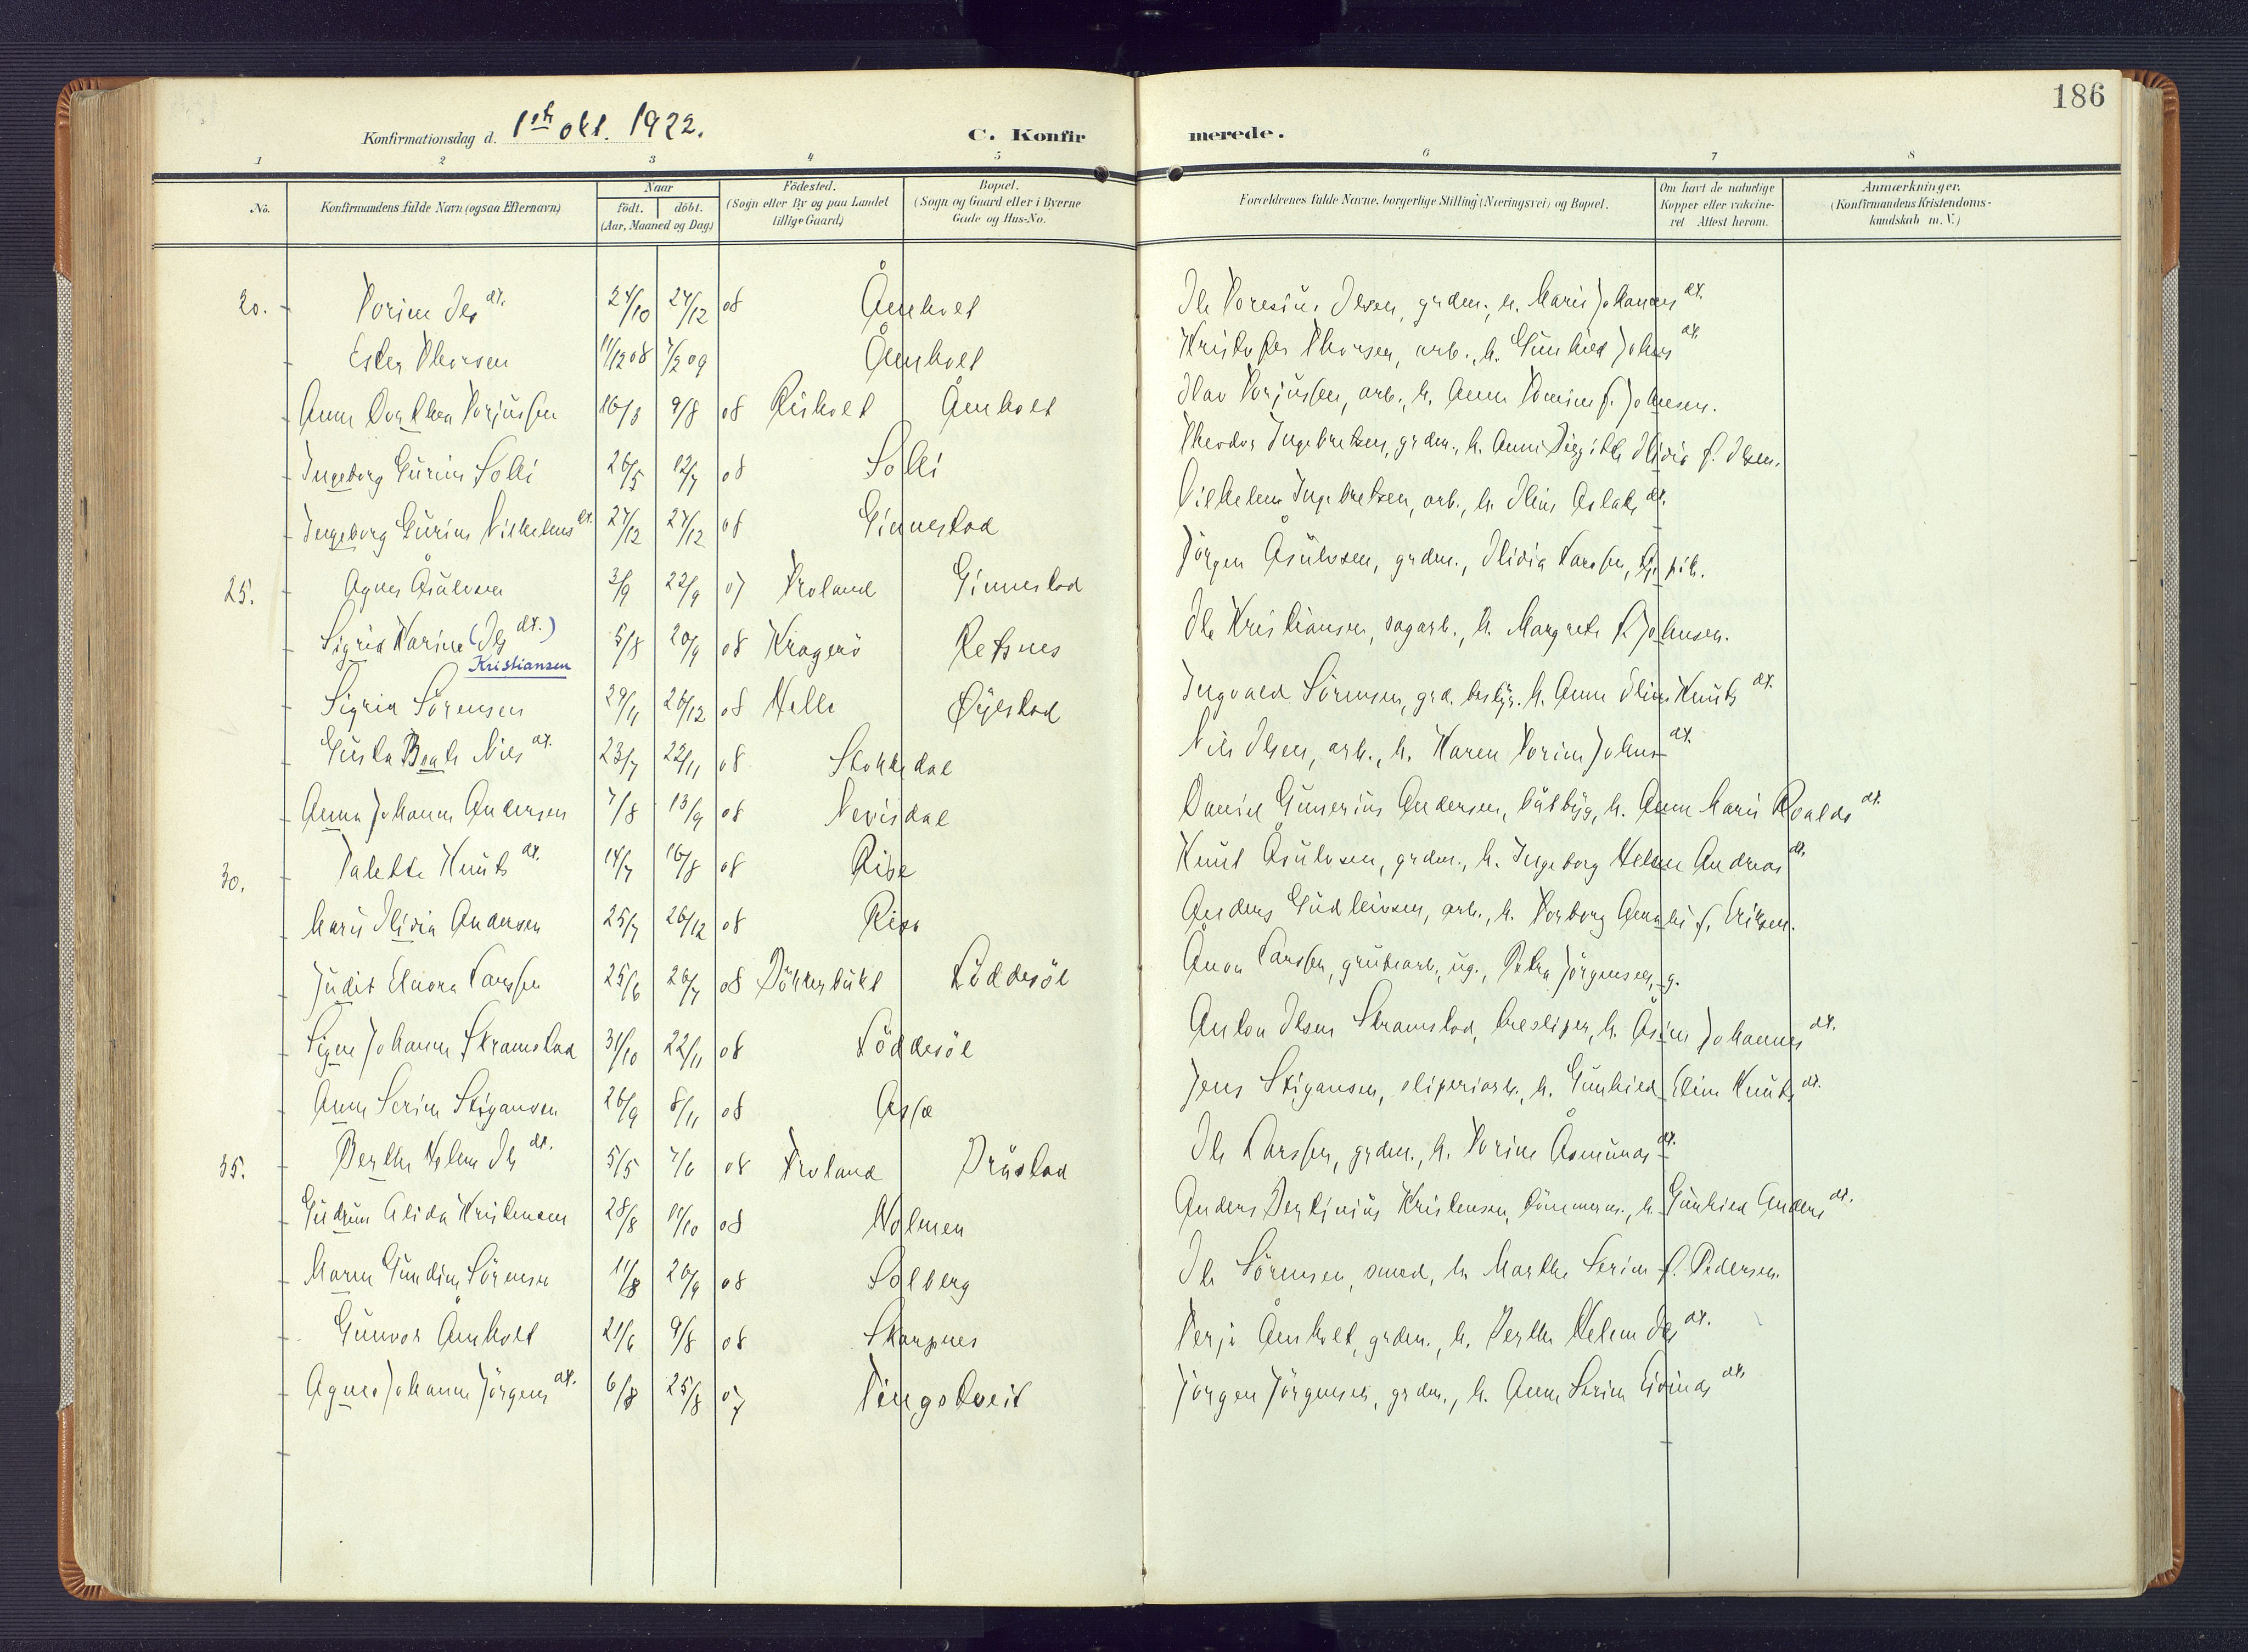 186
Konfirmationsdag d. 1ste okt. 1922.
C. Konfirmerede.
1 2 3 4 5 6 7 8
No.
Konfirmandens fulde Navn (ogsaa Efternavn)
Naar
födt. döbt.
(Aar, Maaned og Dag)
Födested.
(Sogn eller By og paa Landet
tillige Gaard)
Bopæl.
(Sogn og Gaard eller i Byerne
Gade og Hus-No.
Forældrenes fulde Navne, borgerlige Stilling (Næringsvei) og Bopæl.
Om havt de naturlige
Kopper eller vakcine-
ret Attest herom.
Anmærkninger.
(Konfirmandens Kristendoms-
kundskab m. V.)
20. Torine Ols dt. 24/10 27/12 08 Åmholt Ole Toresius Olsen, grdm., h. Marie Johannes dt.
Ester Thorsen 11/12 08 7/2 09 Åmholt Kristofer Thorsen, arb., h. Gunhild Johns dt.
Anne Dorthea Torjussen 16/3 9/8 08 Risholt Åmholt Olav Torjussen, arb., h. Anne Tomine f. Johnsen.
Ingeborg Gurine Solli 26/5 12/7 08 Solli Theodor Ingebretsen, grdm., h. Anne Birgitte Olivia f. Olsen.
Ingeborg Gurine Vilhelms dt. 27/12 27/12 08 Ginnestad Vilhelm Ingebretsen, arb., h. Oline Aslaks dt.
25. Agnes Åsulvsen 3/9 22/9 07 Froland Ginnestad Jörgen Åsulvsen, grdm., Olivia Larssen, pik.
Sigrid Karine (Ols dt.) Kristiansen 5/8 20/9 08 Kragerö Refsnes Ole Kristiansen, sagarb., h. Margrete f. Johnsen.
Sigrid Sörensen 29/11 26/12 08 Helle Øyestad Ingvald Sörensen, grd. bestyr. h. Anne Oline Knuts dt.
Gusta Beate Nils dt. 23/7 22/11 08 Stokkedal Nils Olsen, arb., h. Karen Torine Johns dt.
Anna Johanne Andersen 7/8 13/9 08 Nevisdal Daniel Gunerius Andersen, båtbyg, h. Anne Marie Roalds dt.
30. Talette Knuts dt. 14/7 16/8 08 Rise Knut Åsulvsen, grdm., h. Ingeborg Helene Andreas dt.
Marie Olivia Andersen 25/7 26/12 08 Rise Anders Gudleivsen, arb., h. Torborg f. Eriksen.
Judit Elnora Larssen 25/6 26/7 08 Löddesöl Ånon Larssen, grubearb., ug., Petra Jörgensen, g.
Signe Johanne Skramstad 31/10 22/11 08 Löddesöl Anton Olsen Skramstad, tresliper, h. Åsine Johannes dt.
Anne Serine Stigansen 26/9 8/11 08 Asfæ Jens Stigansen, sliperiarb., h. Gunhild Eline Knuts dt.
35. Berthe Helene Ols dt. 5/5 7/6 08 Froland Bråstad Ole Larssen, grdm., h. Torine Åsmunds dt.
Gudrun Alida Kristensen 28/8 11/10 08 Holmen Anders Bertinius Kristensen, tömmerm., h. Gunhild Anders dt.
Maren Gundine Sörensen 11/8 20/9 08 Solberg Ole Sörensen, smed, h. Marthe Serine f. Pedersen.
Gunvor Åmholt 21/6 9/8 08 Skarpnes Terje Åmholt, grdm., h. Berthe Helene Ols dt.
Agnes Johanne Jörgens dt. 6/8 25/8 07 Tingstveit Jörgen Jörgensen, grdm., h. Anne Serine Eivinds dt.